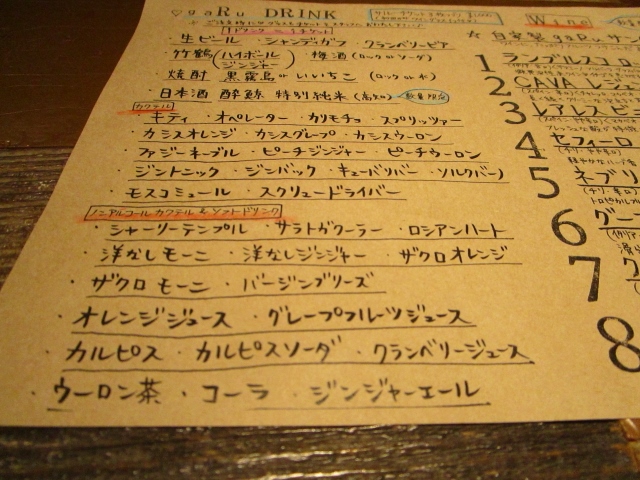 ♡gaRu DRINK
1ドリンク=1チケット
・生ビール ・シャンディガフ クランベリービア
・竹鶴(ハイボール ジンジャー) 梅酒(ロックorソーダ)
・焼酎 黒霧島orいいちこ(ロックor水)
・日本酒 酔鯨 特別純米(高知) 数量限定
カクテル
・キティ ・オペレーター ・カリモチョ ・スプリッツァー
・カシスオレンジ ・カシスグレープ ・カシスウーロン
・ファジーネーブル ・ピーチジンジャー ・ピーチウーロン
・ジントニック ・ジンバック ・キューバリバー ・ソルクバーノ
・モスコミュール ・スクリュードライバー
ノンアルコールカクテル&ソフトドリンク
・シャーリーテンプル ・サラトガクーラー ・ロシアンハート
・洋なしモーニ ・洋なしジンジャー ・ザクロオレンジ
・ザクロモーニ ・バージンブリーズ
・オレンジジュース ・グレープフルーツジュース
・カルピス ・カルピスソーダ ・クランベリージュース
・ウーロン茶 ・コーラ ・ジンジャーエール
Wine
☆自家製gaRuサン
1 ランブルスコロ
2 CAVA レジェ
3 レオレスビ
4 セフィーロ
5 ネブリ
6 グー
7
8